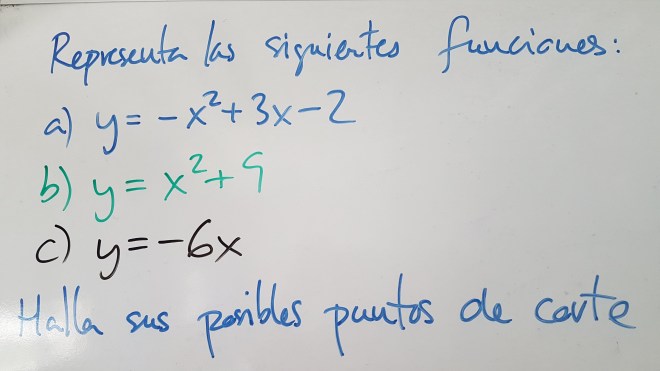 Representa las siguientes funciones:
a) y = -x²+3x-2
b) y = x²+9
c) y=-6x
Halla sus posibles puntos de corte